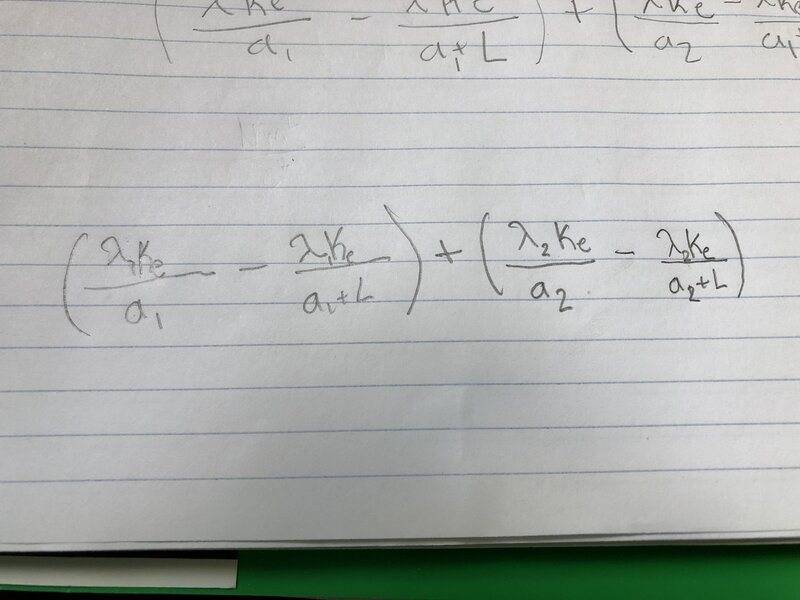 (λKe/a₁ - λKe/a₁+L) + (λKe/a₂ -
(λ₁Ke/a₁ - λ₁Ke/a₁+L) + (λ₂Ke/a₂ - λ₂Ke/a₂+L)